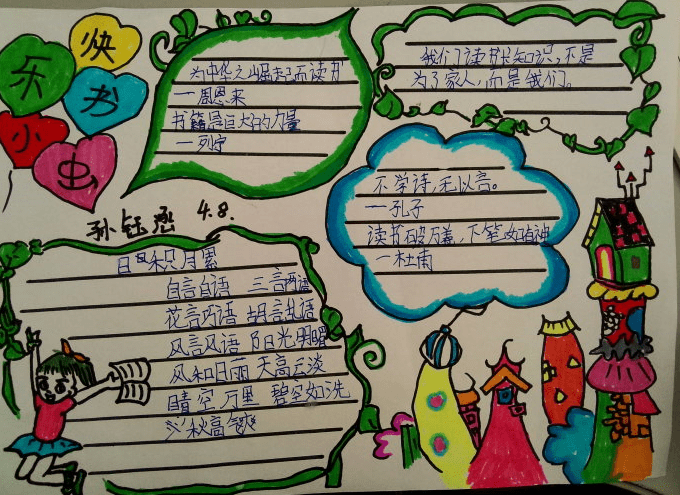 快
乐 书
小 虫
为中华之崛起而读书
一周恩来
书籍是巨大的力量
一列宁
我们读书长知识,不是
为了家人,而是我们。
不学诗,无以言。
一孔子
读书破万卷,下笔如有神
一杜甫
孙钰 4.8.
日日积月累
自言自语 三言两语
花言巧语 胡言乱语
风言风语 阳光明媚
风和日丽 天高云淡
晴空万里 碧空如洗
秋高气爽